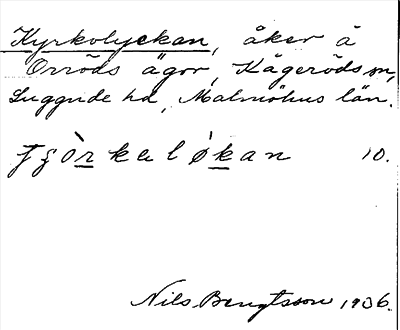 Kyrkolyckan, åker å
Orröds ägor, Kågeröds sn,
Luggude hd, Malmöhus län.
10.
Nils Bengtsson 1936.